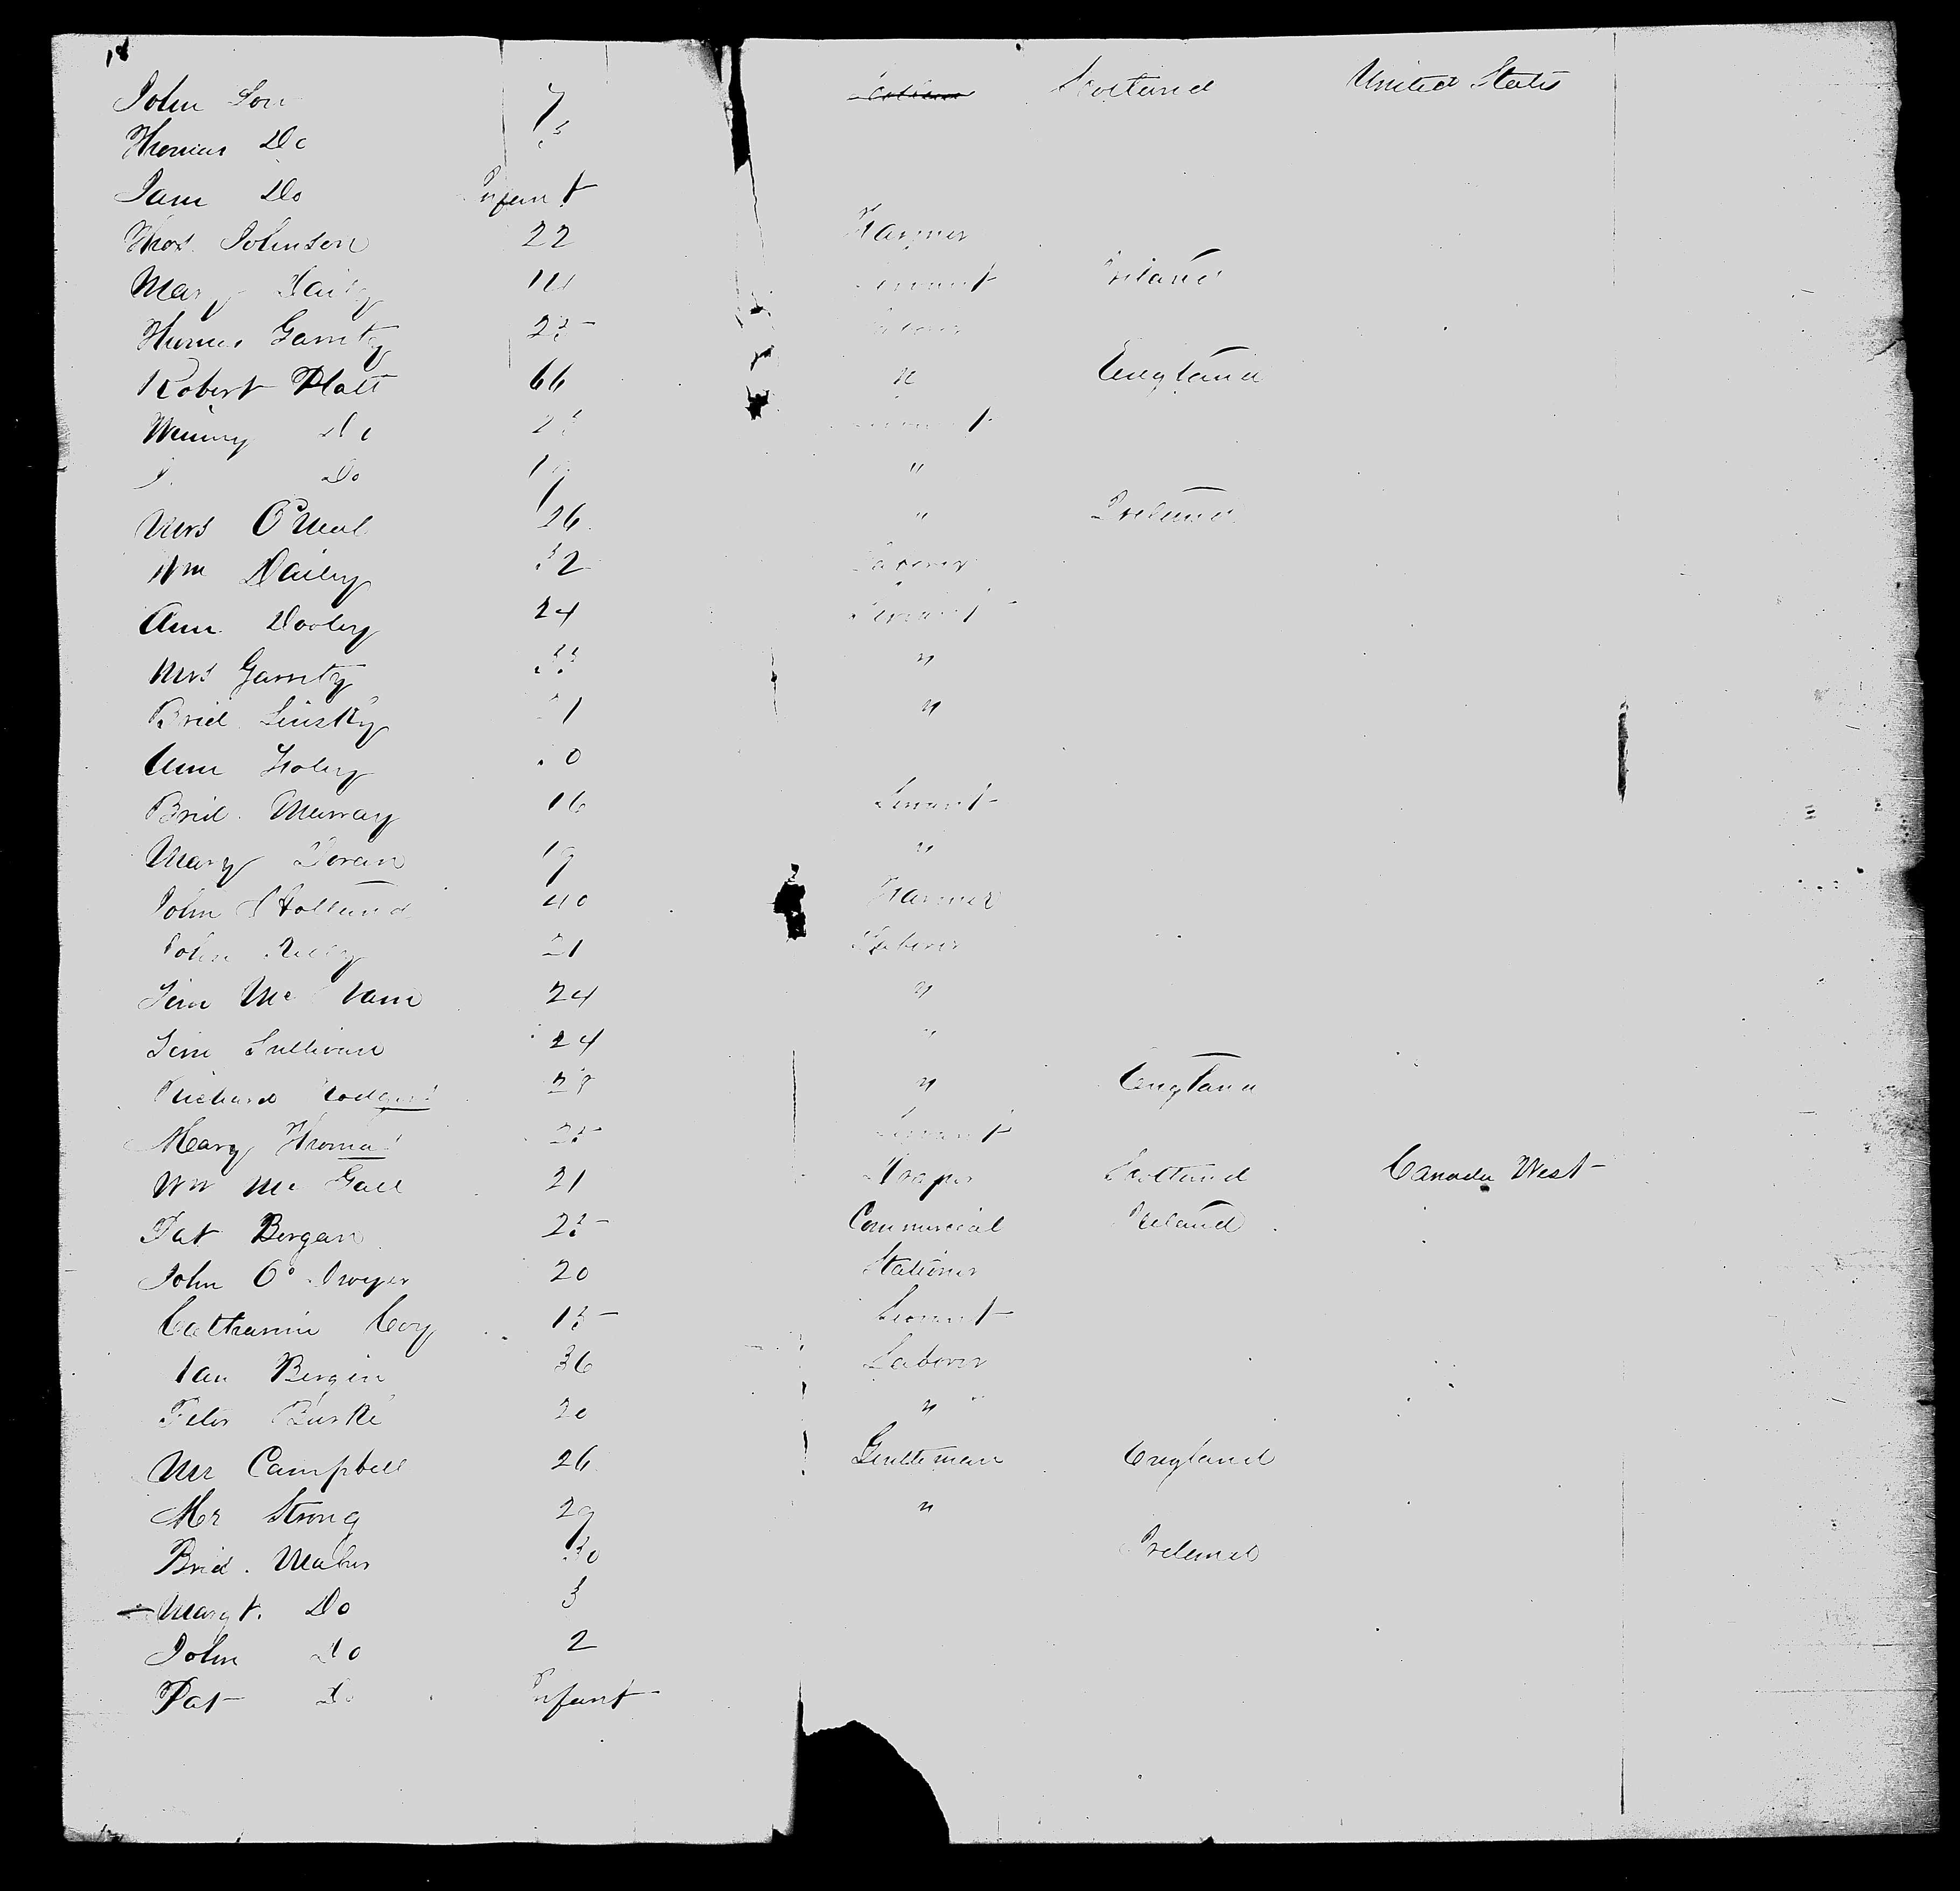 18
John Son 7 Scotland United States
Thomas Do
Jam Do Infant
Thos. Johnson 22 Farmer
Mary Daily Servant Ireland
Garrity 25 Laborer
Robert Platt 66 " England
Winny Do Servant
Do 19 "
Mrs O'Neal 26 " Ireland
Wm Dailey 32 Laborer
Ann Dooley 24 Servant
Mrs Garrity 35 "
Brid. Linsky "
Ann Foley
Brid. Murray 16 Servant
Mary Doran 19 "
John Holland 40 Farmer
John 21 Laborer
Mc 24 "
Sullivan 24 "
Richard Rodgers 28 " England
Mary Thomas 25 Servant
Wm Mc Gall 21 Draper Scotland Canada West
Pat Bergan 25 Commercial Ireland
John O' Dwyer 20 Stationer
Catharine Coy 15 Servant
Bergin 36 Laborer
Peter Burke 20 "
Mr Campbell 26 Gentleman England
Mr Strong 29 "
Brid. Maher 30 Ireland
Margt. Do 5
John Do 2
Pat Do Infant